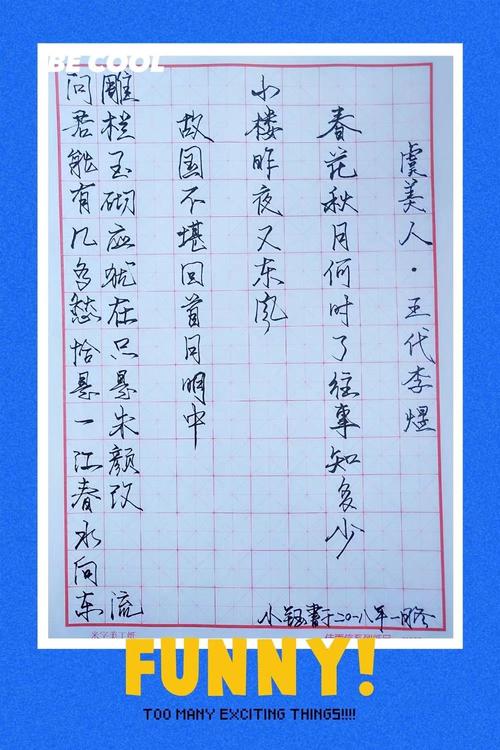 BE COOL
虞美人·五代李煜
春花秋月何时了往事知多少
小楼昨夜又东风
故国不堪回首月明中
雕栏玉砌应犹在只是朱颜改
问君能有几多愁恰是一江春水向东
流
小钰书于二〇一八年一月冬
FUNNY!
TOO MANY EXCITING THINGS!!!!